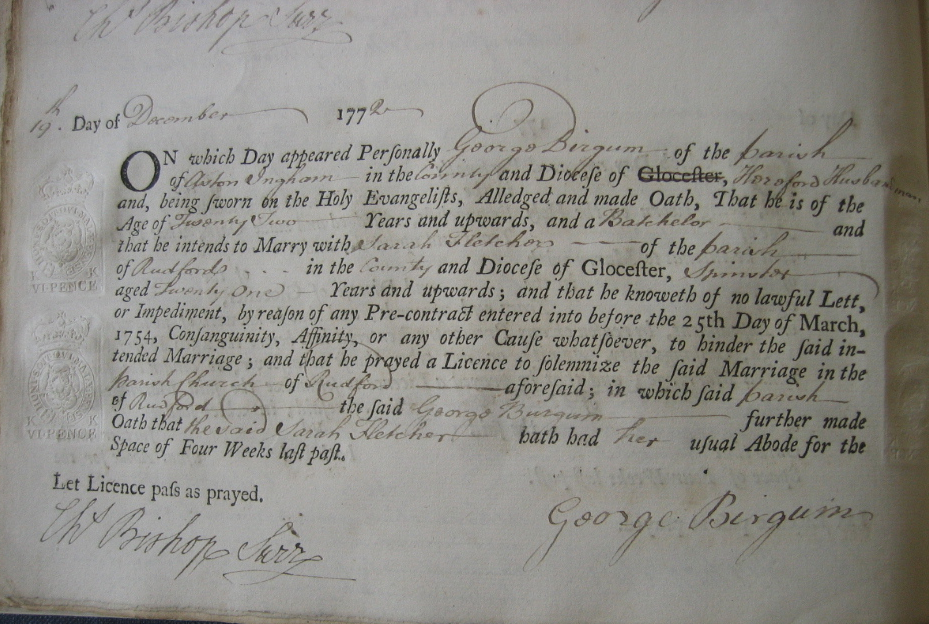 Chs Bishop Surr
19th. Day of December 1772
ON which Day appeared Personally George Birgum of the parish
of Aston Ingham in the County and Diocese of Glocester, Hereford Husbandman
and, being sworn on the Holy Evangelists, Alledged and made Oath, That he is of the
Age of Twenty Two Years and upwards, and a Batchelor and
that he intends to Marry with Sarah Fletcher of the parish
of Rudford in the County and Diocese of Glocester, Spinster
aged Twenty One Years and upwards; and that he knoweth of no lawful Lett,
or Impediment, by reason of any Pre-contract entered into before the 25th Day of March,
1754, Consanguinity, Affinity, or any other Cause whatsoever, to hinder the said in-
tended Marriage; and that he prayed a Licence to solemnize the said Marriage in the
parish Church of Rudford aforesaid; in which said parish
of Rudford the said George Burgum further made
Oath that the said Sarah Fletcher hath had her usual Abode for the
Space of Four Weeks last past.
Let Licence pass as prayed.
Chs Bishop Surr
George Birgum
VI PENCE
VI PENCE